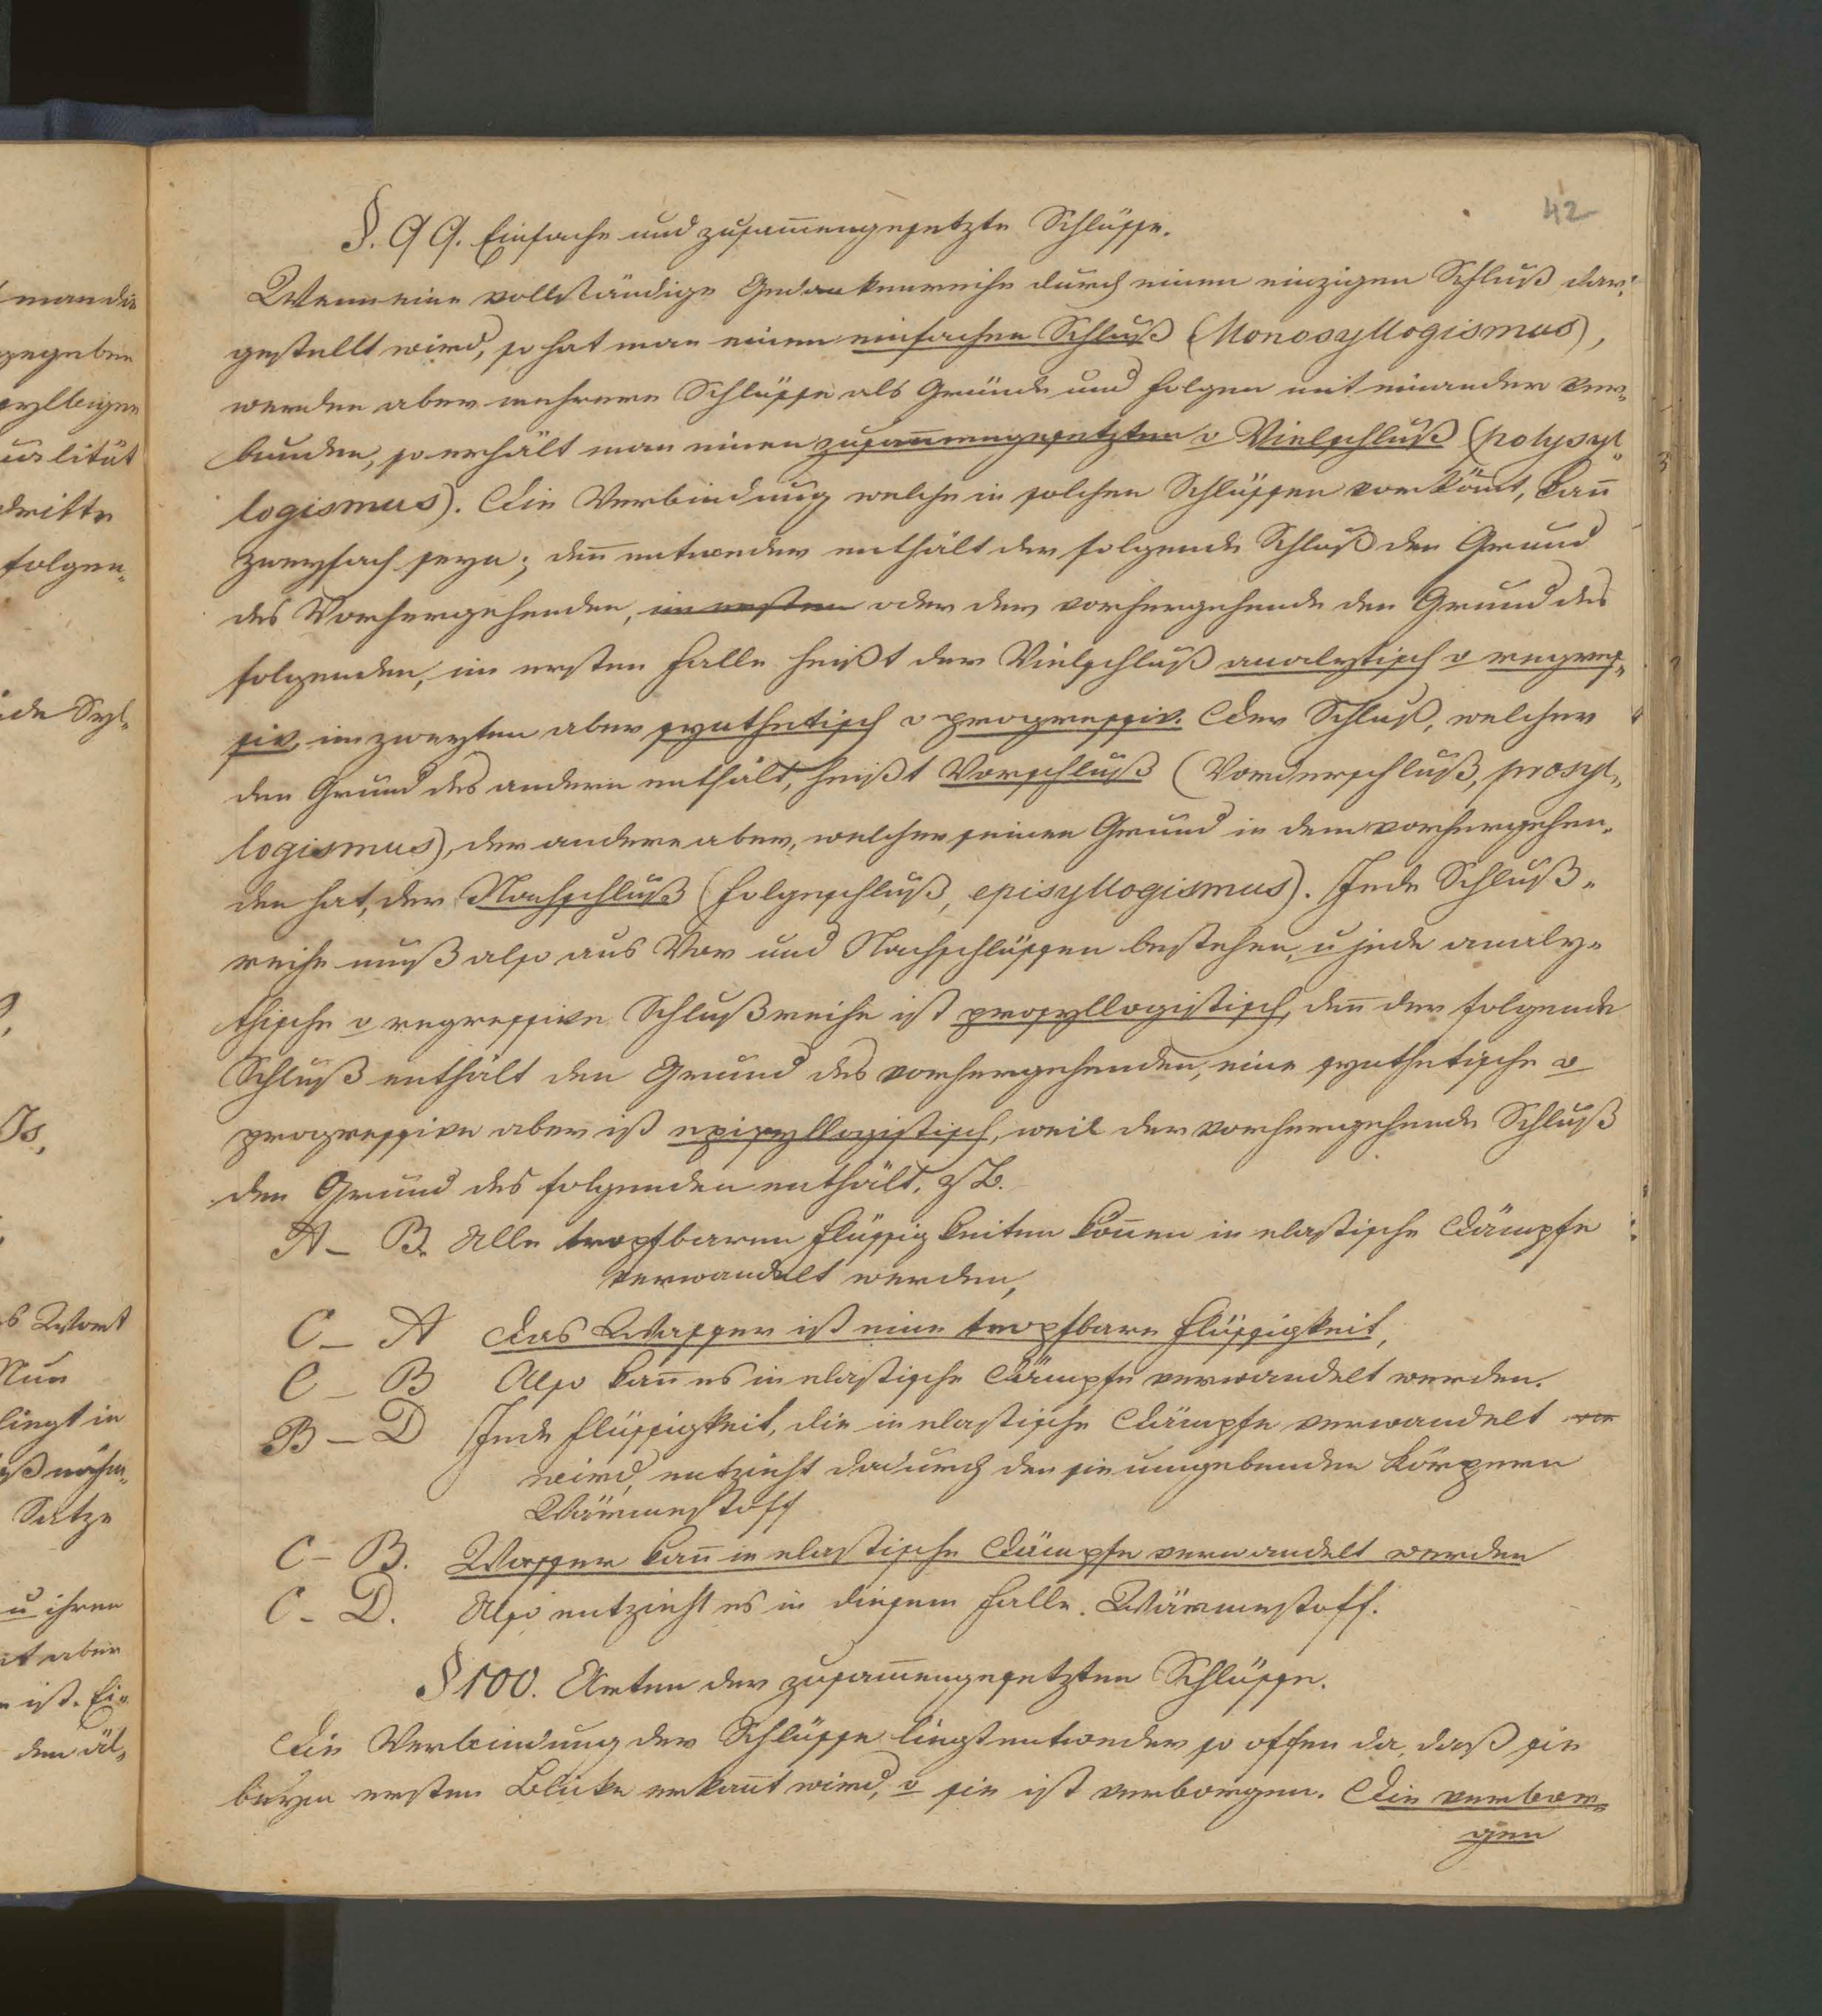 42
§. 99. Einfache und zusam̄engesetzte Schlüsse.
Wenn eine vollständige Gedankenreihe durch einen einzigen Schluß dar-
gestellt wird, so hat man einen einfachen Schluß (Monosyllogismus),
werden aber mehrere Schlüsse als Gründe und Folgen mit einander ver-
bunden, so erhält man einen zusam̄engesetzten o Vielschluß (polysyl-
logismus). Die Verbindung welche in solchen Schlüssen vorköm̄t, kan̄
zweyfach seyn; den̄ entweder enthält der folgende Schluß den Grund
des Vorhergehenden, im ersten oder der vorhergehende den Grund des
folgenden, im ersten Falle heißt der Vielschluß analytisch o regres-
siv, im zweyten aber synthetisch o progressiv. Der Schluß, welcher
den Grund des andern enthält, heißt Vorschluß (Vorderschluß, prosyl-
logismus), der andere aber, welcher seinen Grund in dem vorhergehen-
den hat, der Nachschluß (Folgeschluß, episyllogismus). Jede Schluß-
reihe muß also aus Vor und Nachschlüssen bestehen, u jede analy-
thische o regressive Schlußreihe ist prosyllogistisch, den̄ der folgende
Schluß enthält den Grund des vorhergehenden, eine synthetische o
progressive aber ist episyllogistisch, weil der vorhergehende Schluß
den Grund des folgenden enthält, z B.
A – B. Alle tropfbaren Flüssigkeiten kön̄en in elastische Dämpfe
verwandelt werden,
C – A Das Wasser ist eine tropfbare Flüssigkeit,
C – B Also kan̄ es in elastische Dämpfe verwandelt werden.
B – D Jede Flüssigkeit, die in elastische Dämpfe verwandelt
wird, entzieht dadurch den sie umgebenden Körpern
Wärmestoff
C – B. Wasser kan̄ in elastische Dämpfe verwandelt werden
C – D. Also entzieht es in diesem Falle Wärmestoff.
§ 100. Arten der zusam̄engesetzten Schlüsse.
Die Verbindung der Schlüsse liegt entweder so offen da, daß sie
beym ersten Blicke erkan̄t wird, o sie ist verborgen. Die verbor-
gen